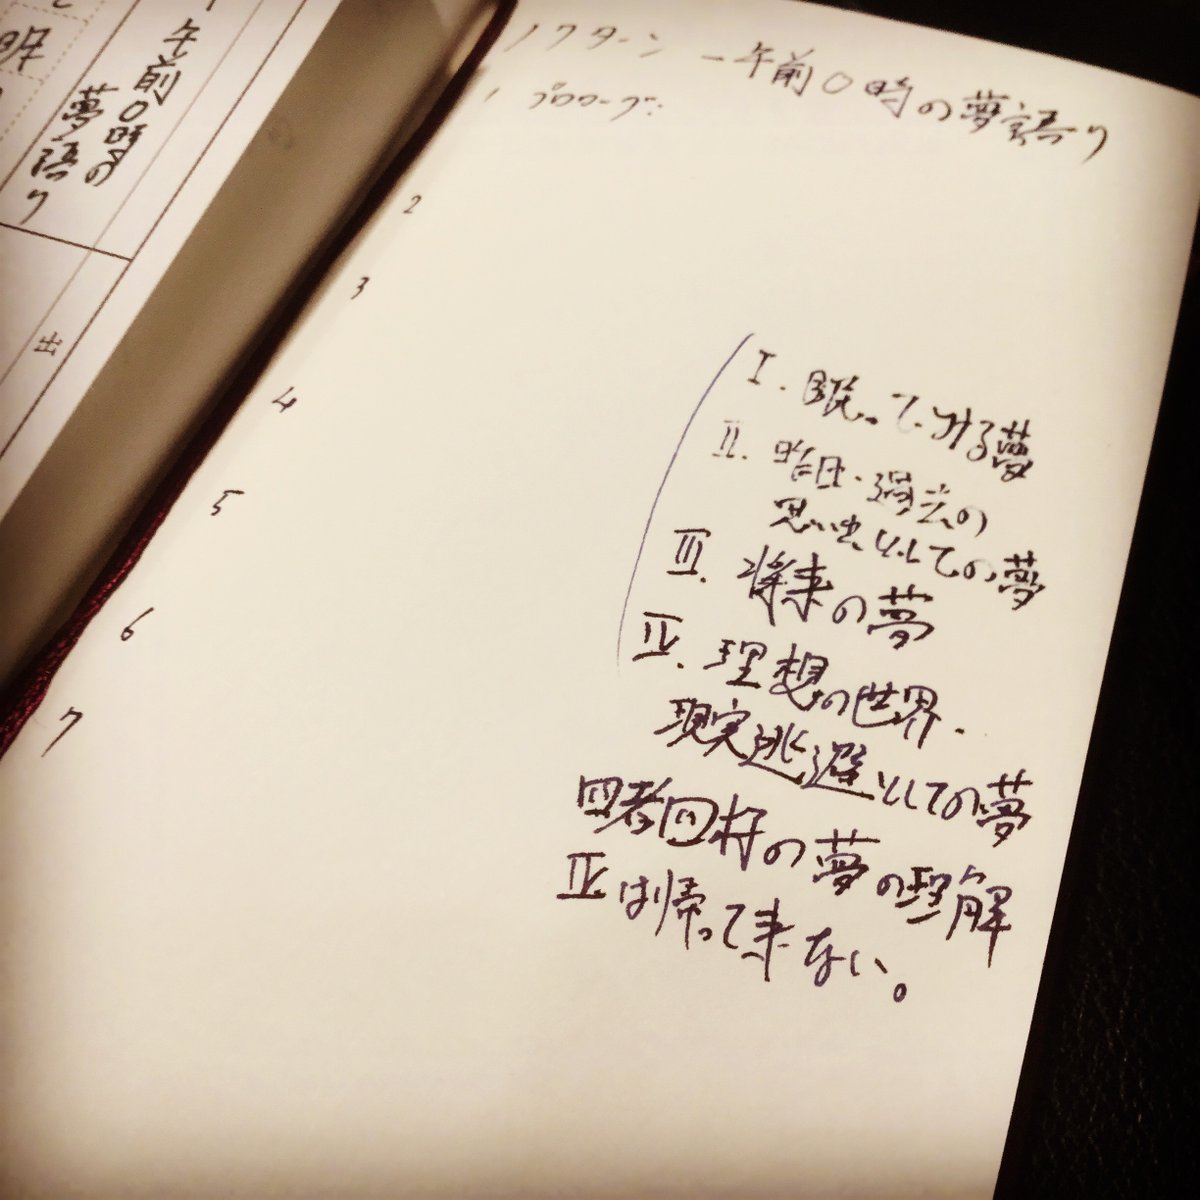 ノクターン ー午前0時の夢語り
1 プロローグ:
2
3
4
5
6
7
I. 眠ってみる夢
II. 昨日・過去の
思い出としての夢
III. 将来の夢
IV. 理想の世界・
現実逃避としての夢
四者四様の夢の理解
IVは帰って来ない。
午前0時の
夢語り
出